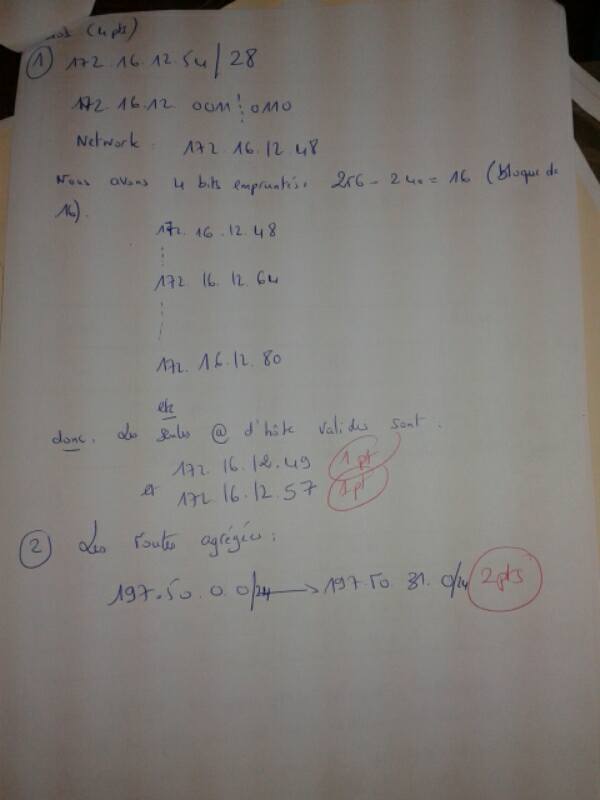 (4 pts)
1 172.16.12.54/28
172.16.12. 0011 0110
Network: 172.16.12.48
Nous avons 4 bits empruntés. 256 - 240 = 16 (bloque de
16).
172.16.12.48
172.16.12.64
172.16.12.80
etc
donc. Les seules @ d'hôte valides sont.
172.16.12.49 1 pt
et 172.16.12.57 1 pt
2 Les routes agrégées:
197.50.0.0/24 → 197.50.31.0/24 2 pts